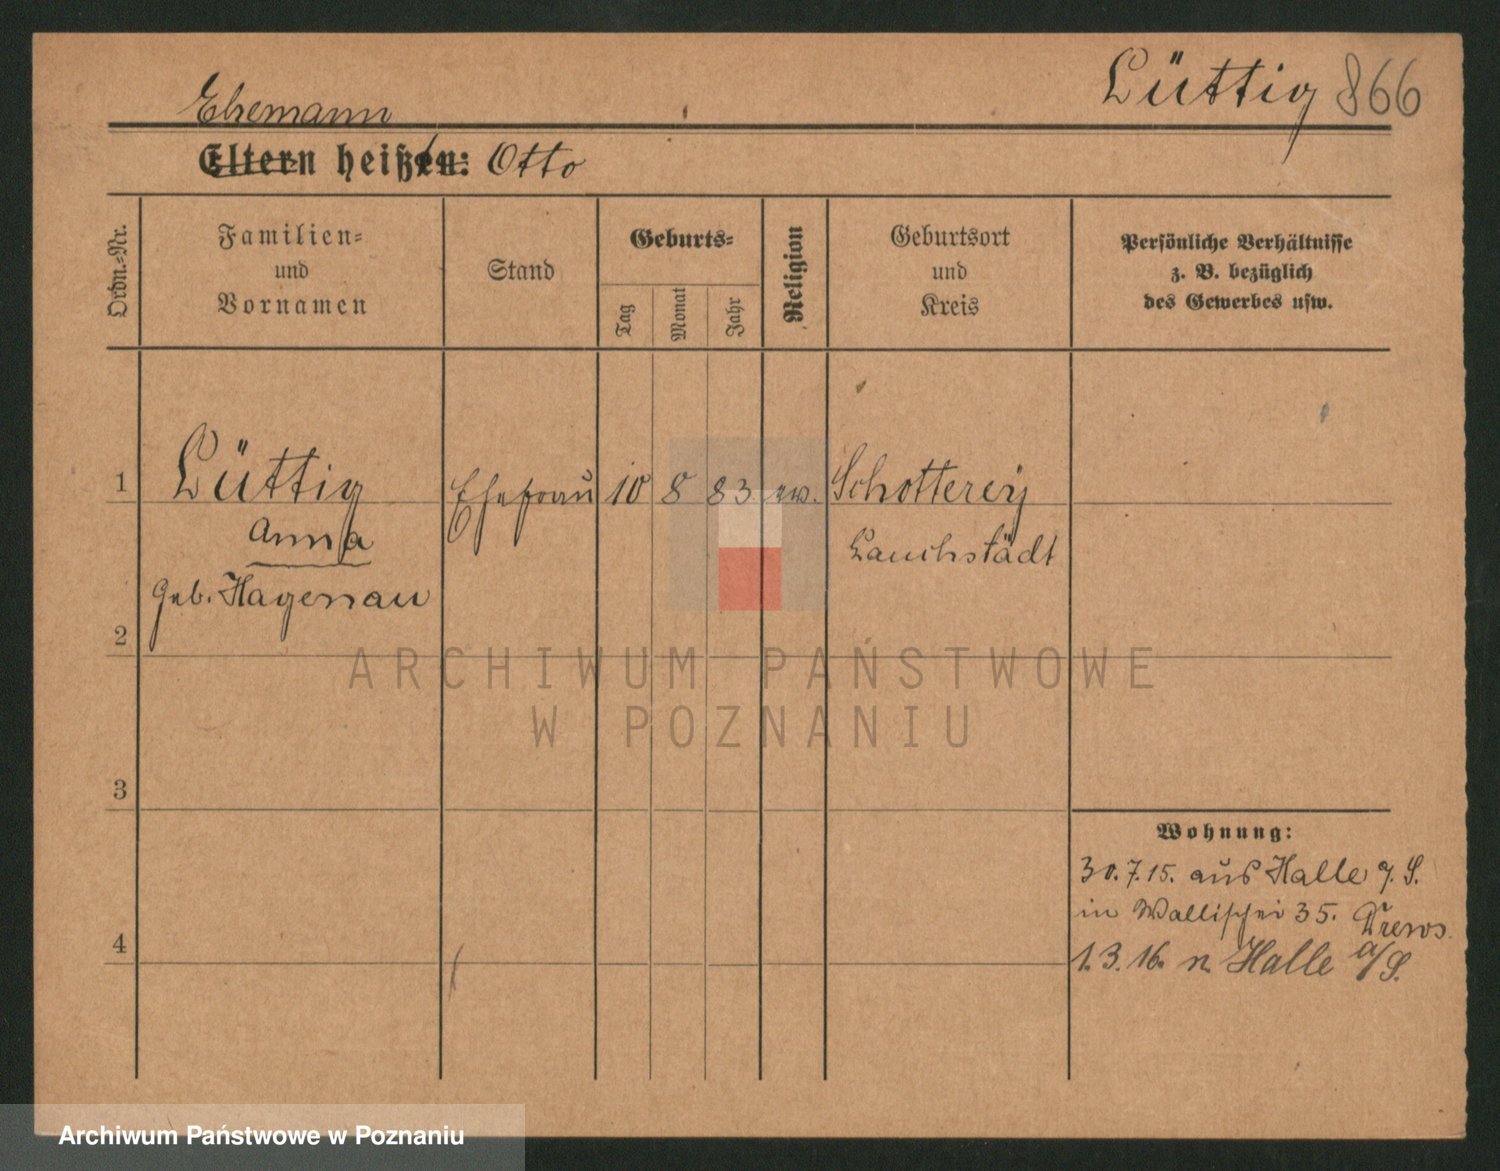 Lüttig 866
Ehemann
Eltern heißen: Otto
Ordn.-Nr.
Familien-
und
Vornamen
Stand
Geburts-
Tag
Monat
Jahr
Religion
Geburtsort
und
Kreis
Persönliche Verhältnisse
z. B. bezüglich
des Gewerbes usw.
1 Lüttig Ehefrau 10 8 83 ev. Schotterey
Anna Lauchstädt
geb. Hagenau
2
3
Wohnung:
30.7.15. aus Halle a. S.
in Wallischei 35. Drews.
4 1.3.16. n. Halle a/S.
ARCHIWUM PAŃSTWOWE
W POZNANIU
Archiwum Państwowe w Poznaniu